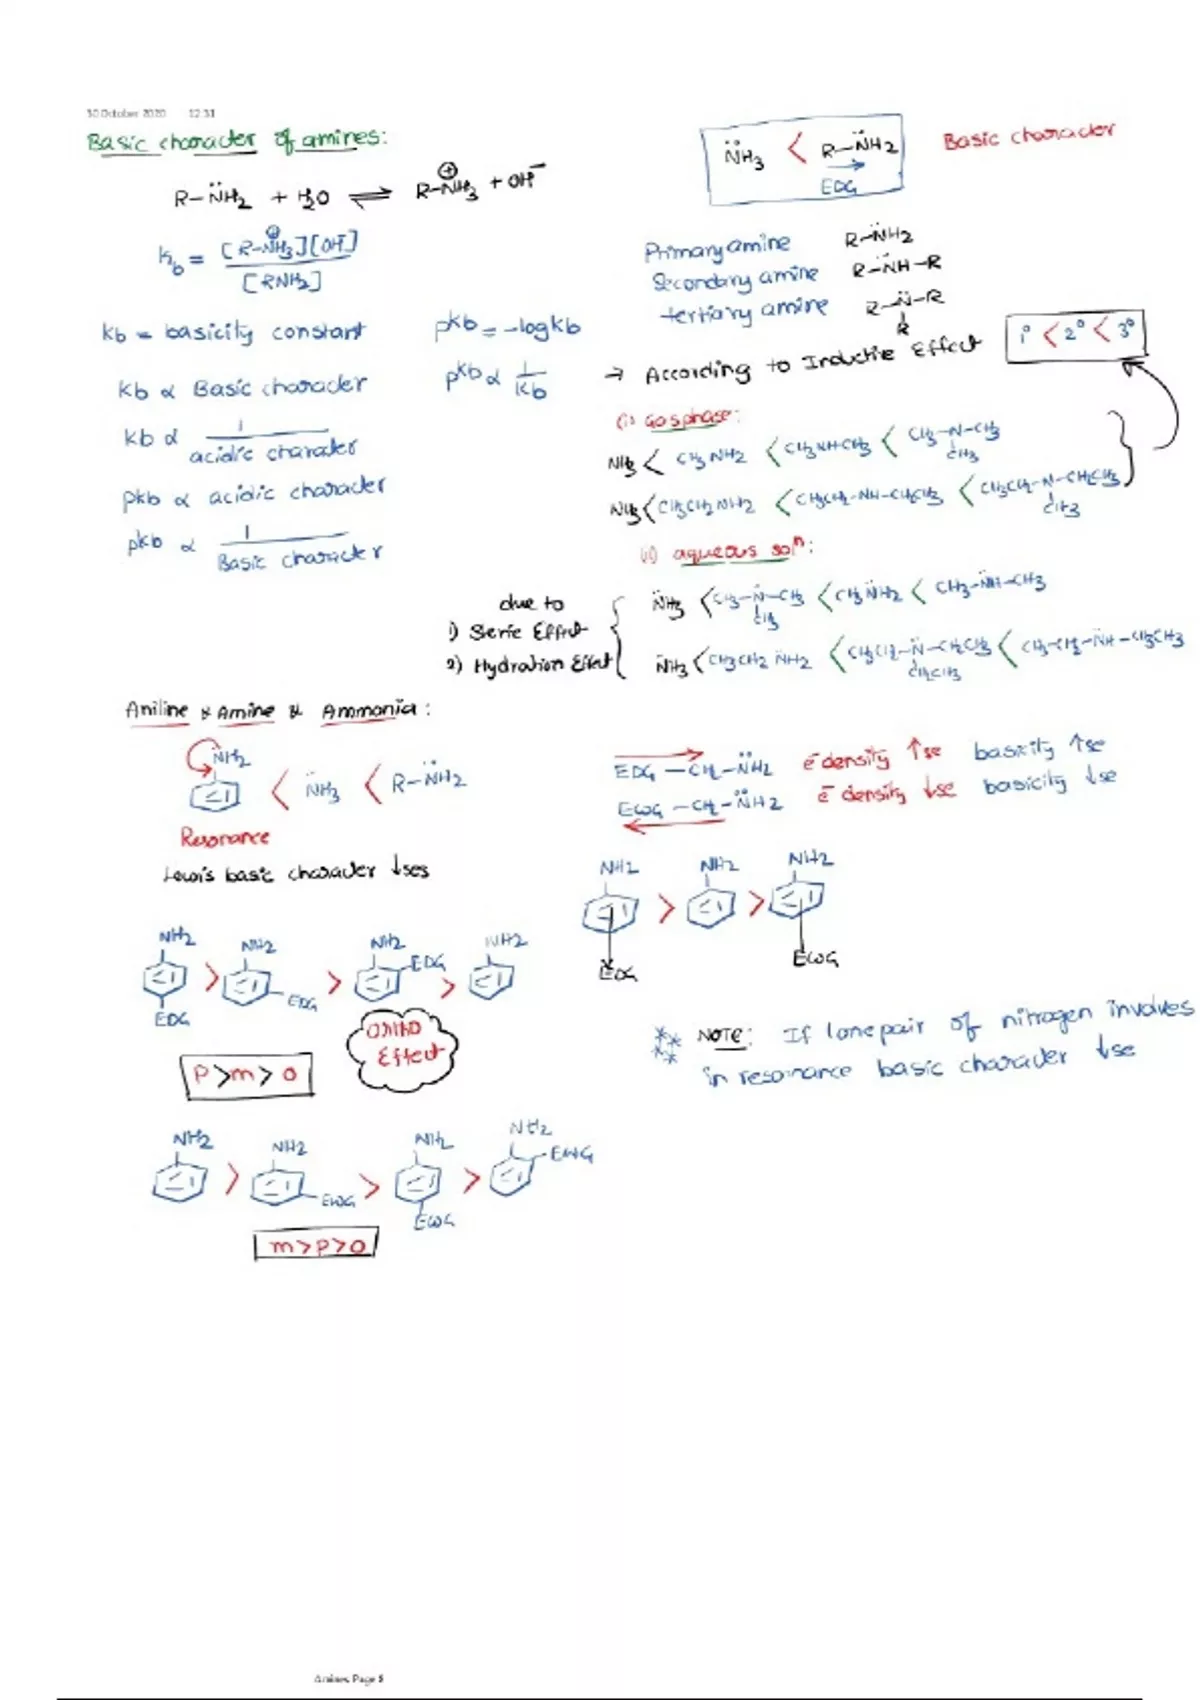 30 October 2020 12:31
Basic character of amines:
R-N̈H2 + H2O ⇌ R-NH3⊕ + OH⁻
Kb = [R-NH3⊕][OH⁻] / [RNH2]
Kb = basicity constant
pKb = -log Kb
Kb α Basic character
pKb α 1/Kb
Kb α 1/acidic character
pKb α acidic character
pKb α 1/Basic character
N̈H3 < R-N̈H2 Basic character
EDG
Primary amine R-N̈H2
Secondary amine R-N̈H-R
tertiary amine R-N̈-R
R
→ According to Inductive Effect 1° < 2° < 3°
(i) Gas phase:
NH3 < CH3NH2 < CH3NHCH3 < CH3-N-CH3
CH3
NH3 < CH3CH2NH2 < CH3CH2-NH-CH2CH3 < CH3CH2-N-CH2CH3
(ii) aqueous solⁿ:
due to
1) Steric Effect
2) Hydration Effect
N̈H3 < CH3-N̈-CH3 < CH3N̈H2 < CH3-N̈H-CH3
CH3
N̈H3 < CH3CH2N̈H2 < CH3CH2-N̈-CH2CH3 < CH3CH2-N̈H-CH2CH3
CH2CH3
Aniline & Amine & Ammonia:
N̈H2 < N̈H3 < R-N̈H2
Resonance
Lewis basic character ↓ses
EDG-CH2-N̈H2 e⁻ density ↑se basicity ↑se
EWG-CH2-N̈H2 e⁻ density ↓se basicity ↓se
NH2 > NH2 > NH2
EDG EWG
NH2 > NH2 > NH2 > NH2
EDG EDG EDG
ortho
Effect
p > m > o
** NOTE: If lone pair of nitrogen involves
** in resonance basic character ↓se
NH2 > NH2 > NH2 > NH2
EWG EWG EWG
m > p > o
Amines Page 8